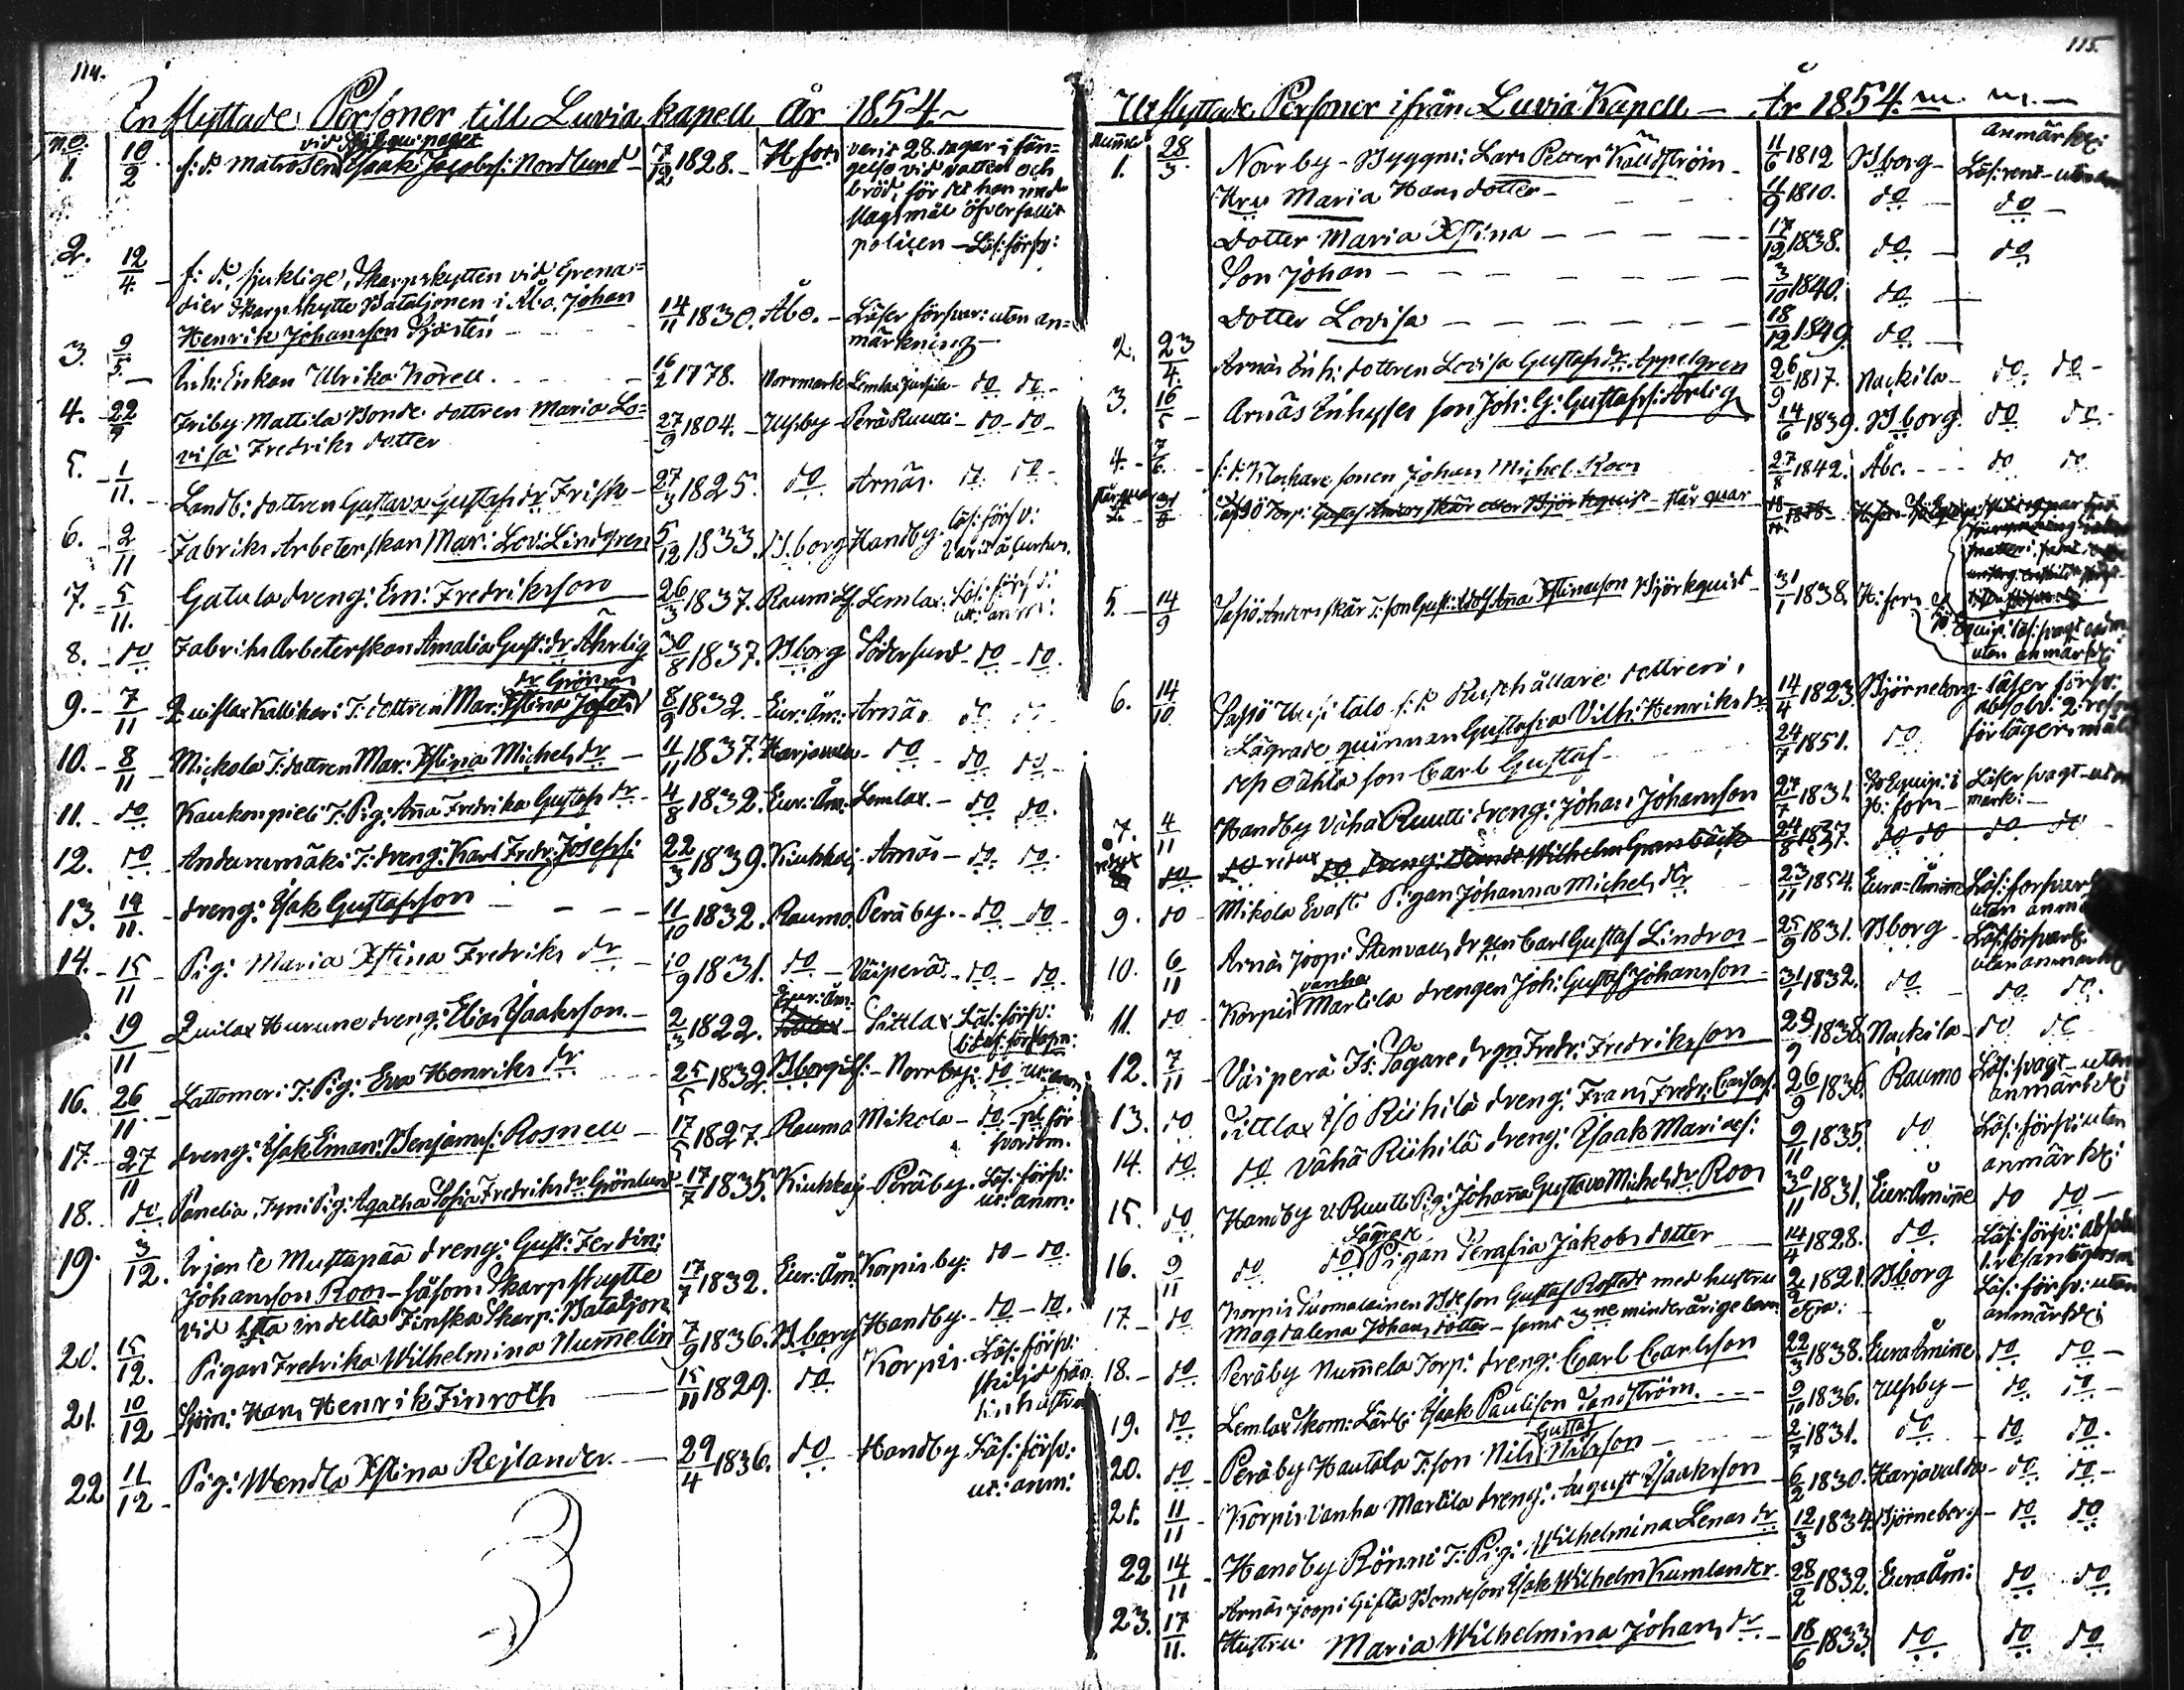 114.
Inflyttade Personer till Luvia kapell År 1854.
no.
1. 10/2 f: d: matrosen vid Skeps equipaget Isaak Jacobss: Nordlund 7/12 1828. H:fors
varit 28 dagar i fän-
gelse vid vatten och
bröd, för det han med
slagsmål öfverfallit
policen – Läs: försv:
2. 12/4 f: d: sjuklige, Skarpskytten vid Grena-
dier Skarpskytte Bataljonen i Åbo, Johan
Henrik Johansson 14/11 1830. Åbo. – Läser försvar: utan an-
märkning –
3. 9/5 Inh: Enkan Ulrika Norell 16/2 1778. Norrmark Lemlax – do do –
4. 22/9 Friby Mattila Bonde dottren Maria Lo-
visa Fredriks dotter 27/9 1804. – Ulfsby – Perä Ruutti – do – do –
5. 1/11. Landb: dottren Gustava Gustafs dr Frisk – 27/3 1825. do Arnäs. do do –
6. 2/11 Fabriks Arbeterskan Mar: Lov: Lindgren 5/12 1833. B:borg Handby. Läs: försv:
7. 5/11. Gatula dreng: Em: Fredriksson 26/3 1837. Raumo Lf. Lemlax. Läs: försv:
ut: anm:
8. do Fabriks Arbeterskan Amalia Gust: dr Ährlig 30/8 1837. Bborg Södersund – do – do.
9. 7/11 Quislax Kallikari T: dottren Mar: Xstina Josefs dr Grönroos 8/9 1832. Eur: Åm: Arnäs do do
10. 8/11 Mickola T: dottren Mar: Xstina Michels dr 11/11 1837. Harjavalta – do – do do –
11. do Kaukompieli T: Pig: Anna Fredrika Gustafs dr – 4/8 1832. Eur: Åm. Lemlax. – do do.
12. do Anduramäki T: dreng: Karl Fredr: Josefss: 22/3 1839. Kiukkais – Arnäs – do do.
13. 14/11. dreng: Isak Gustafsson 11/10 1832. Raumo. Peräby. – do do –
14. 15/11 Pig: Maria Xstina Fredriks dr 10/9 1831. do – Väiperä – do – do.
19/11 Quilax Hurune dreng: Elias Isaaksson. – 2/3 1822. Eur: Åm. Sattlax – Läs: försv:
16. 26/11 Lattomeri T: Pig: Eva Henriks dr 25/5 1832. Bborg Lf: – Norrby: do ut: anm:
17. 27/11 dreng: Isak Eman: Benjamss: Rosnell – 17/5 1827. Raumo Mikola – do
18. do Panelia, Tyni Pig: Agatha Sofia Fredriks dr Grönlund – 17/7 1835. Kiukkais – Peräby. Läs: försv:
ut: anm:
19. 3/12. Irjante Mustapää dreng: Gust: Ferdin:
Johansson Roos – såsom Skarpskytte
vid 1sta indelta Finska Skarp: Bataljon 17/7 1832. Eur: Åm. Korpis by. do – do.
20. 15/12. Pigan Fredrika Wilhelmina Nummelin 7/9 1836. B:borg Handby. – do – do.
21. 10/12 Sjöm: Hans Henrik Finroth 15/11 1829. do Korpis. Läs: försv:
skiljd från
sin hustru
22 11/12 – Pig: Wendla Xstina Rejlander. – 29/4 1836. do – Handby Läs: försv:
ut: anm:
115.
Utflyttade Personer ifrån Luvia Kapell – År 1854. m. m. –
Nummer
anmärkn:
1. 28/3 Norrby – Byggm: Lars Petter Källström – 11/6 1812 B:borg – Läs: rent – utan anm
Hru Maria Hans dotter – 11/9 1810. do do –
Dotter Maria Xstina – – – – 17/12 1838. do – do
Son Johan – – – – – 3/10 1840. do –
Dotter Lovisa – – – – – 18/12 1849. do –
2. 23/4 Arnäs Inh: dottren Lovisa Gustafs dr Appelgren 26/9 1817. Nackila – do do –
3. 16/5 – Arnäs Inhyses son Joh: G: Gustafss: Ärlig 14/6 1839. B:borg. do do –
4. – 7/6. – f: d: Klockare sonen Johan Michel Roos 27/8 1842. Åbo. – – do do
står quar
5. – 14/9 Sassö Anderskär T: son Gust: Adolf Anna Xstinason Björkquist – 31/1 1838. H:fors
utan anmärkn:
6. 14/10 Sassö Uusi talo f: d: Rusthållare dottren,
Lägrade quinnan Gustafva Vilh: Henriks dr 14/4 1823. Björneborg – läser försv:
absolv: 2: resan
för lägersmål
dess oäkta son Carl Gustaf – 24/7 1851. do
7. 4/11 Handby Vähä Ruutti dreng: Johan Johansson 27/7 1831. Sk Equip: i H:fors – Läser svagt – utan
mark: –
do redux do dreng: Wilhelm Granbäck 24/8 1837. do do do do
9. do – Mikola Evasti Pigan Johanna Michels dr 23/11 1854. Eura-Åminne Läs: försvarl:
utan anm
10. 6/11 Arnäs Joopi Stenvalls drgn Carl Gustaf Lindros – 25/9 1831. Bborg – Läs: försvarl:
utan anmärkn:
11. do – Korpis vanha Martila drengen Joh: Gustaf Johansson – 31/1 1832. do – do do.
12. 7/11 – Väiperä Is: Sågare drgn Fredr: Fredriksson 29/9 1838. Nackila – do do
13. do Sattlax Iso Riihilä dreng: Frans Fredr: Carlss: 26/9 1836. Raumo Läs: svagt – utan
anmärkn:
14. do do Vähä Riihilä dreng: Isaak Mariass: 9/11 1835. do Läs: försv: utan
anmärkn:
15. do Handby V: Ruutti Pig: Johanna Gustava Michels dr Roos 30/11 1831. Eur: Åminne do do –
16. 9/11 do do Lägrade Pigan Serafia Jakobs dotter 14/4 1828. do Läs: försv: absolv:
17. – do Korpis Tuomalainen Bde son Gustaf Rostedt med hustru 2/2 1821. Bborg Läs: försv: utan
Magdalena Johans dotter – samt 3ne minderårige barn anmärkn:
18. – do Peräby Nummela Torp: dreng: Carl Carlsson 22/3 1838. Eura Åminne do do –
19. do – Lemlax Skom: Lärl: Isaak Paulisson Sandström. – – – 9/10 1836. Ulfsby – do do –
20. do – Peräby Hautala T: son Nils Gustaf Nilsson – – 2/7 1831. do – do do.
21. 11/11 – Korpis Vanha Martila dreng: August Isaaksson – 6/2 1830. Harjavalta – do do –
22 14/11 – Handby Rönni T: Pig: Wilhelmina Lenas dr 12/3 1834. Björneborg – do do
23. 17/11. Arnäs Joopi Gifta Bondeson Isak Wilhelm Kumlander – 28/2 1832. Eura Åm: do do
Hustru Maria Wilhelmina Johans dr – 18/6 1833. do do do